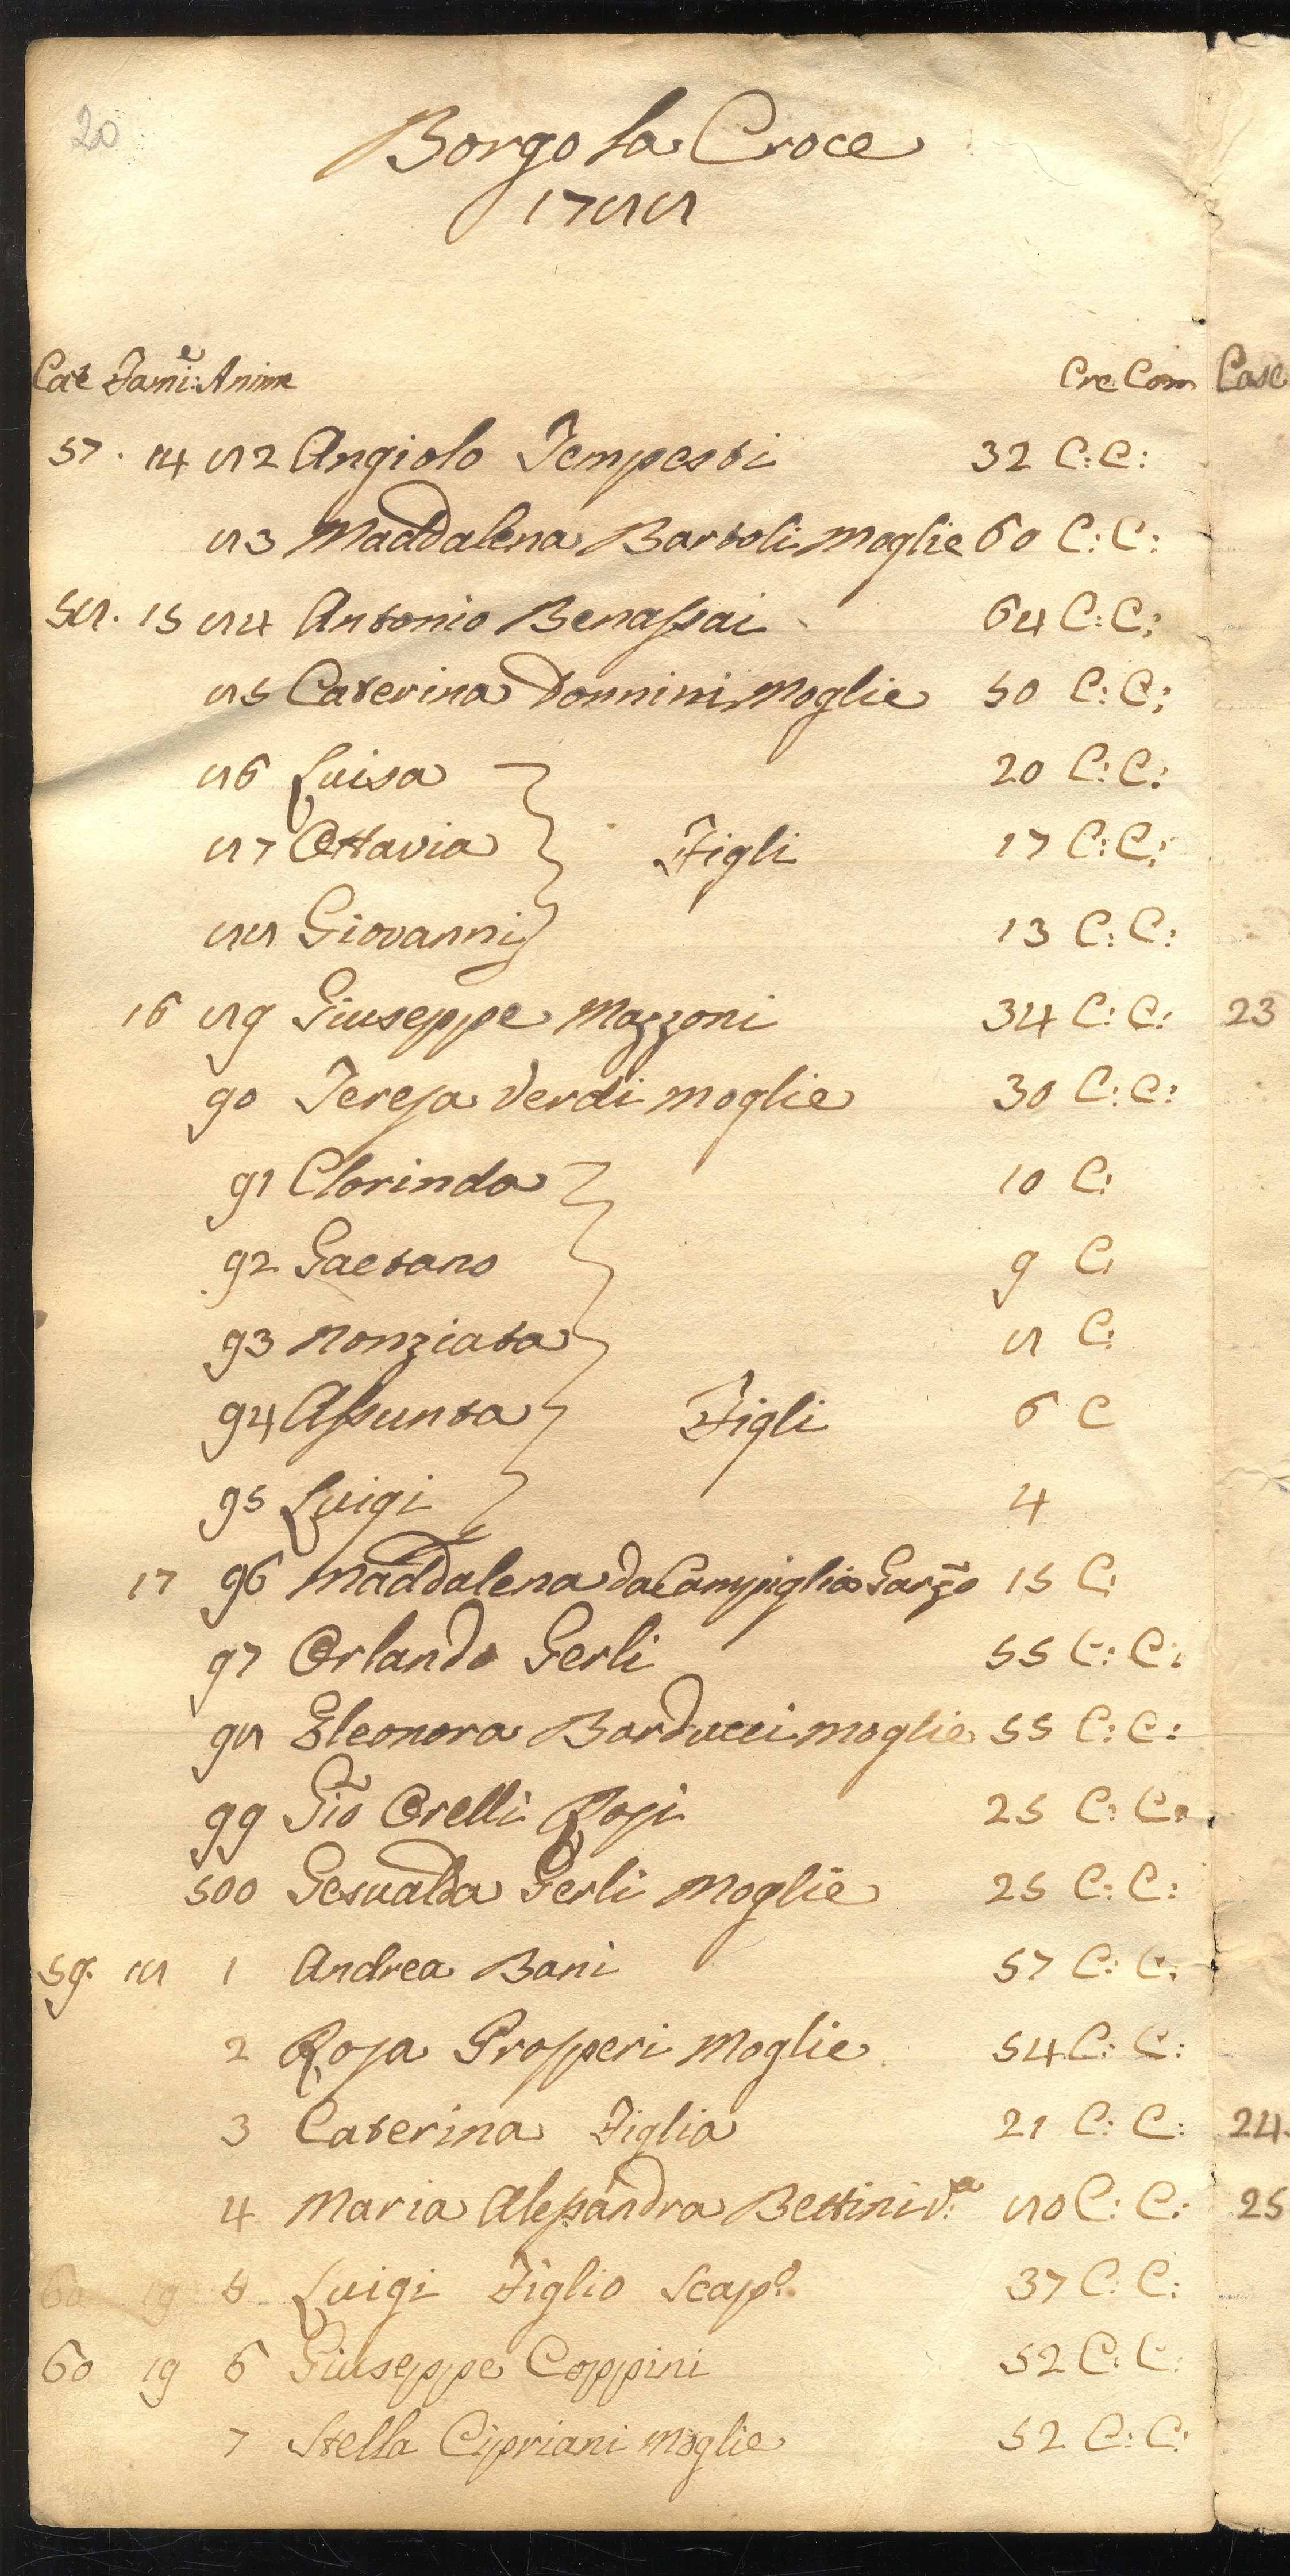 20
Borgo la Croce
1788
Case Fami:e Anime Cre Com
57. 14 82 Angiolo Tempesti 32 C: C:
83 Maddalena Bartoli Moglie 60 C: C:
58. 15 84 Antonio Benassai 64 C: C:
85 Caterina Donnini Moglie 50 C: C:
86 Luisa 20 C: C:
87 Ottavia Figli 17 C: C:
88 Giovanni 13 C: C:
16 89 Giuseppe Mazzoni 34 C: C:
90 Teresa Verdi moglie 30 C: C:
91 Clorinda 10 C:
92 Gaetano 9 C:
93 Nonziata 8 C:
94 Assunta Figli 6 C
95 Luigi 4
17 96 Maddalena da Campiglia Garzo 15 C:
97 Orlando Gerli 55 C: C:
98 Eleonora Barducci moglie 55 C: C:
99 Gio Orelli Rosi 25 C: C:
500 Gesualda Gerli Moglie 25 C: C:
59. 18 1 Andrea Bani 57 C: C:
2 Rosa Prosperi Moglie 54 C: C:
3 Caterina Figlia 21 C: C:
4 Maria Alessandra Bettini V.a 80 C: C:
60 19 5 Luigi Figlio Scap.o 37 C: C:
60 19 6 Giuseppe Coppini 52 C: C:
7 Stella Cipriani Moglie 52 C: C:
Case
23
24
25